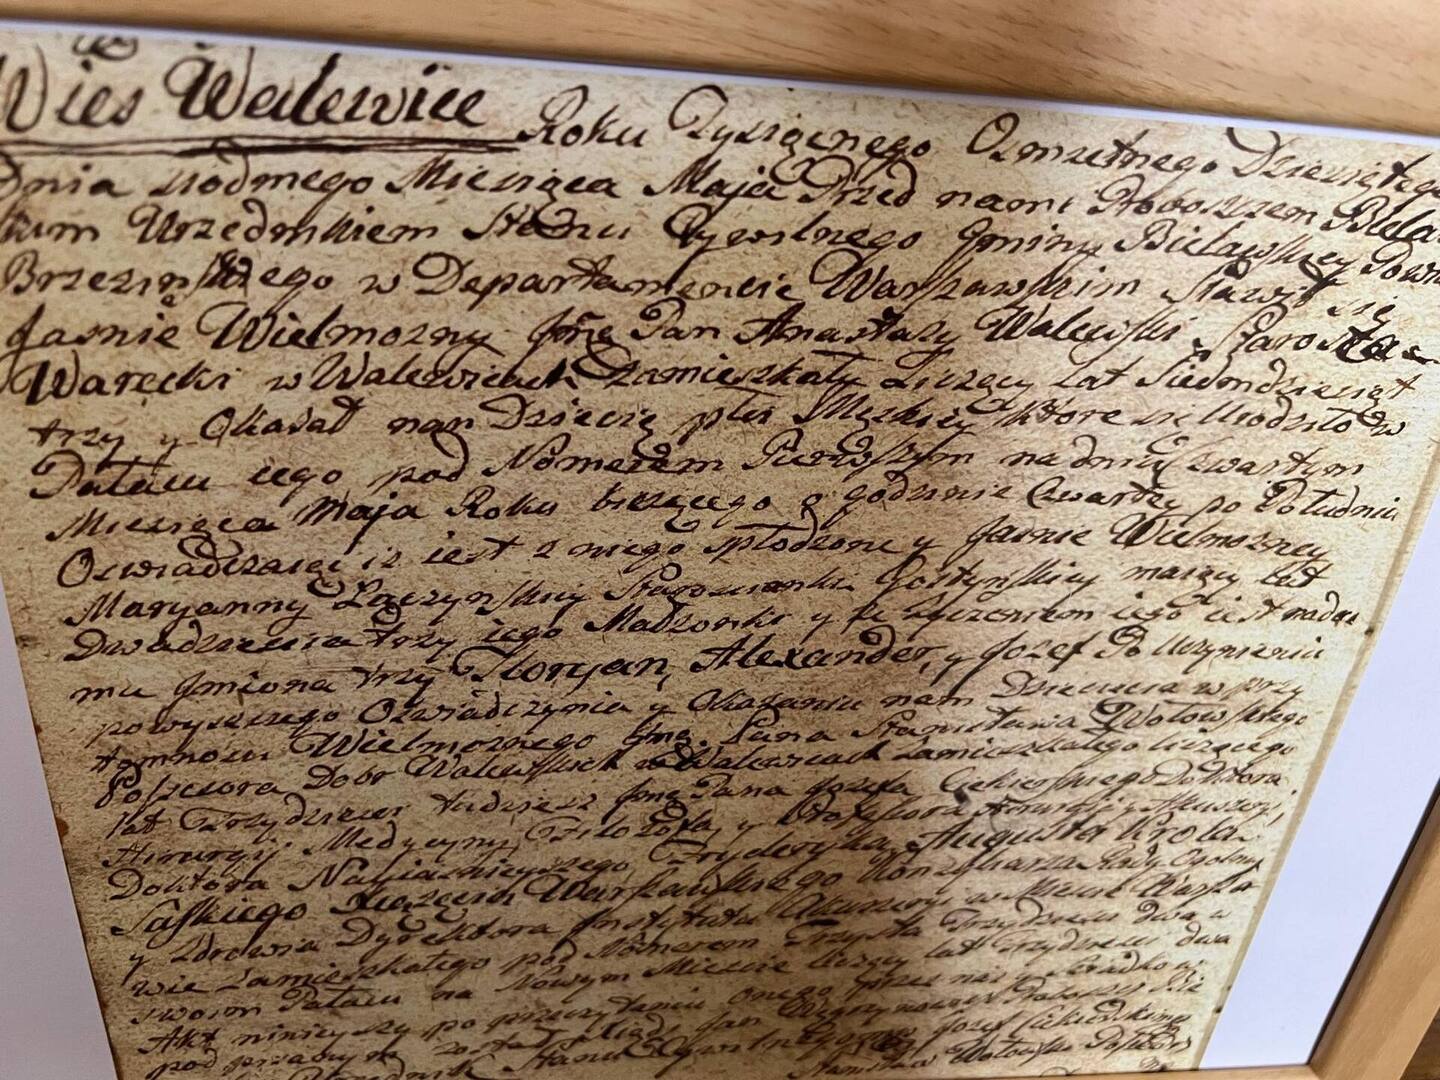 Wies Walewice Roku Tysiącnego Osmsetnego Dziesiątego
Dnia siodmego Miesiąca Maja Przed nami Proboszczem Biela
Urzędnikiem Stanu Cywilnego Gminy Bielawskiey Powia
Brzezinskiego w Departamencie Warszawskim Stawił się
Jasnie Wielmozny Jmę Pan Anastazy Walewski Starosta
Warecki w Walewicach zamieszkały Liczący Lat Siedmdziesiąt
trzy y Okazał nam Dziecię płci Męzkiey ktore się Urodziło w
Pałacu iego pod Nomerem Pierwszym na dniu czwartym
Miesiąca Maja Roku bieżącego o godzinie Czwartey po Południu
Oswiadczaiąc iz iest z niego spłodzone y Jasnie Wielmozney
Maryanny Łączynskiey Starościanki Gostynskiey maiącey Lat
Dwadziescia trzy iego Małzonki y ze życzeniem iego iest nadac
mu Jmiona trzy Floryan, Alexander, y Jozef Po Uczynieniu
powyzszego Oswiadczynia y Okazaniu nam Dziecięcia w przy
tomnosci Wielmoznego Jmę Pana Stanisława Wołowskiego
Possesora Dobr Walewskich w Walewicach zamieszkałego liczącego
lat Trzydziesci tudziesz Jmę Pana Jozefa Ciekierskiego Doktora
Hirurgii Medycyny Filozofii y Professora Hirurgii y Akuszeryi,
Doktora Nayiasnieyszego Fryderyka Augusta Krola
Saskiego Xiążęcia Warszawskiego Konsyliarza Rady Ogolney
y Zdrowia Dyrektora Jnstytutu Akuszeryi w Miescie Warsza
wie Zamieszkałego pod Nomerem Trzysta Trzydziesci dwa w
swoim Pałacu na Nowym Miescie liczący lat Trzydziesci dwa
Akt ninieyszy po przeczytaniu onego przez nas
pod został Jan Proboszcz
Stanu Cywilnego Jozef Ciekierski
Stanisław Wołowski Possesor